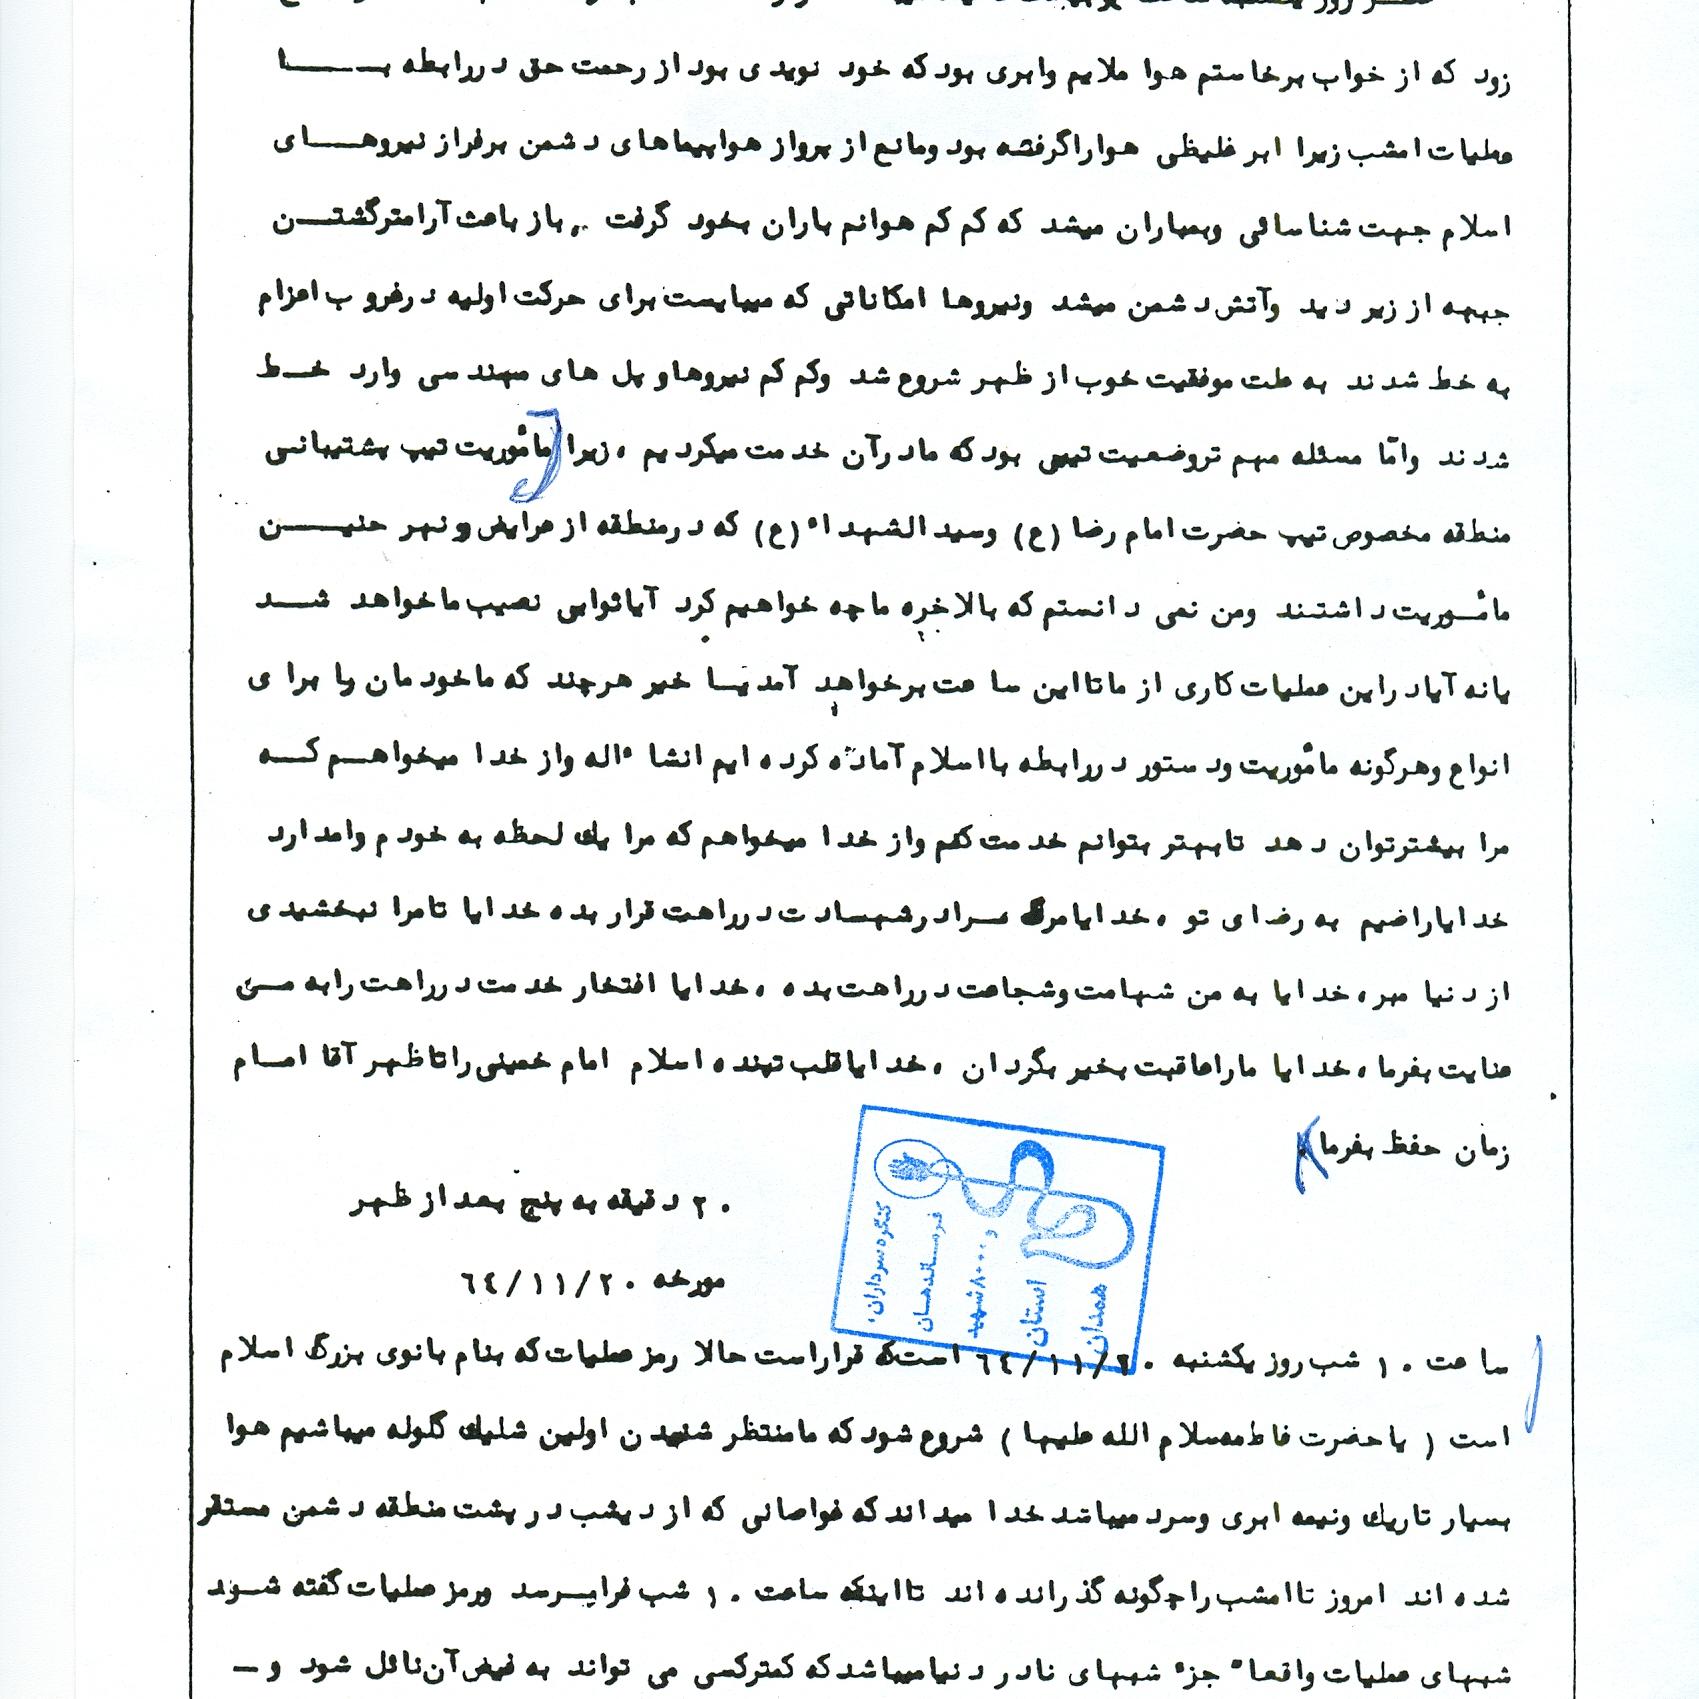 زود که از خواب برخاستم هوا ملایم وابری بود که خود نویدی بود از رحمت حق در رابطه بــــا
عملیات امشب زیرا ابر غلیظی هوارا گرفته بود و مانع از پرواز هواپیماهای دشمن برفراز نیروهــای
اسلام جهت شناسائی وبمباران میشد که کم کم هوانم باران بخود گرفت .. باز باعث آرامترگشتــن
جبهه از زیر دید وآتش دشمن میشد ونیروها امکاناتی که میبایست برای حرکت اولیه در غروب اعزام
به خط شدند به علت موفقیت خوب از ظهر شروع شد وکم کم نیروها و پل های مهندسی وارد خــط
شدند وامّا مسئله مهم تر وضعیت تیپی بود که ما در آن خدمت میکردیم ، زیرا مأموریت تیپ پشتیبانــی
منطقه مخصوص تیپ حضرت امام رضا (ع) وسید الشهداء (ع) که در منطقه از عرایض و نهر حنیــن
مأمــوریت داشتند ومن نمی دانستم که بالاخره ما چه خواهیم کرد آیا ثوابی نصیب ما خواهد شــد
یا نه آیا در این عملیات کاری از ما تا این ساعت برخواهد آمد یــا خیر هرچند که ما خودمان را برای
انواع وهرگونه مأموریت ودستور در رابطه با اسلام آماده کرده ایم انشاءاله واز خدا میخواهــم کــه
مرا بیشتر توان دهد تا بهتر بتوانم خدمت کنم واز خدا میخواهم که مرا یک لحظه به خودم وامدارد
خدایا راضیم به رضای تو ، خدایا مرگ مــرا در شهــادت در راهت قرار بده خدایا تا مرا نبخشیدی
از دنیا مبر ، خدایا به من شهامت وشجاعت در راهت بده ، خدایا افتخار خدمت در راهت را به مــن
عنایت بفرما ، خدایا ما را عاقبت بخیر بگردان ، خدایا قلب تپنده اسلام امام خمینی را تا ظهر آقا امــام
زمان حفظ بفرما
۲۰ دقیقه به پنج بعد از ظهر
مورخه ۶۴/۱۱/۲۰
کنگره سرداران،
فرماندهان
و ۸۰۰۰ شهید
استان
همدان
ساعت ۱۰ شب روز یکشنبه ۶۴/۱۱/۲۰ است که قرار است حالا رمز عملیات که بنام بانوی بزرگ اسلام
است ( یا حضرت فاطمه سلام الله علیها ) شروع شود که ما منتظر شنیدن اولین شلیک گلوله میباشیم هوا
بسیار تاریک ونیمه ابری وسرد میباشد خدا میداند که غواصانی که از دیشب در پشت منطقه دشمن مستقر
شده اند امروز تا امشب را چگونه گذرانده اند تا اینکه ساعت ۱۰ شب فرا برسد ورمز عملیات گفته شــود
شبهای عملیات واقعاً جزء شبهای نادر دنیا میباشد که کمتر کسی می تواند به فیض آن نائل شود و ـ